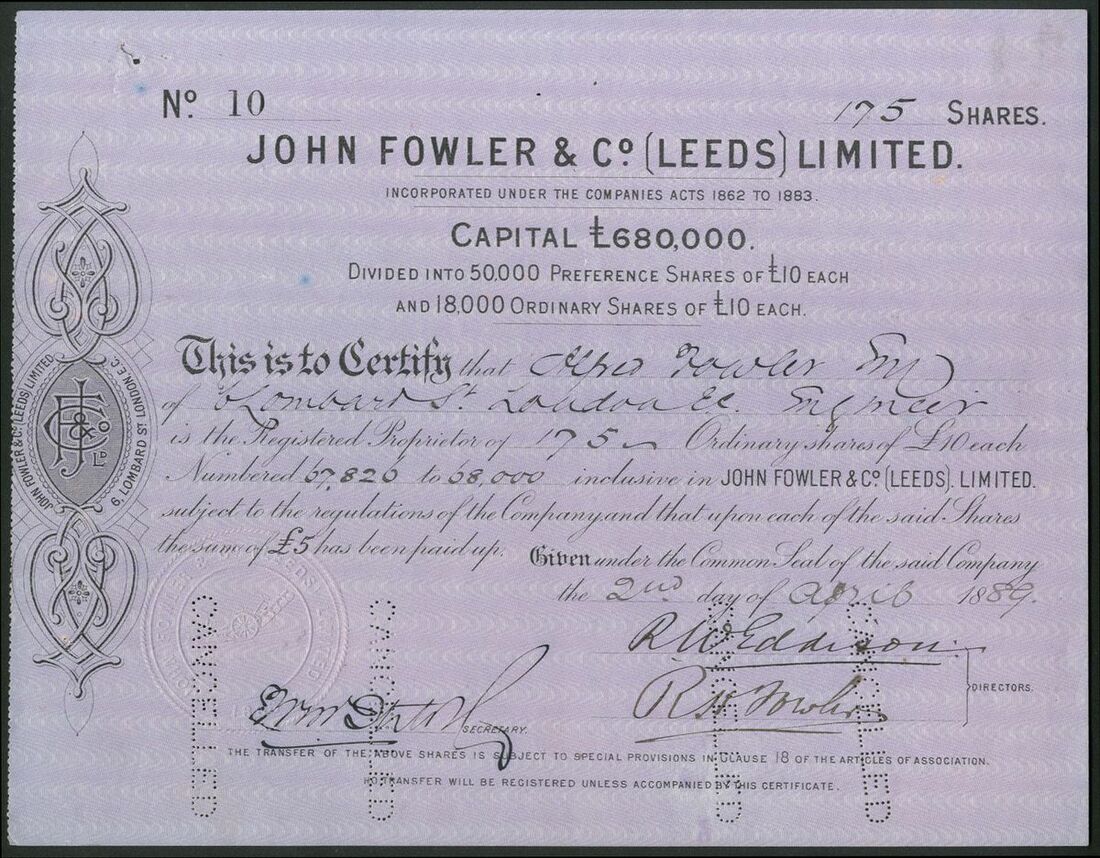 Nº 10
175 SHARES.
JOHN FOWLER & Cº (LEEDS) LIMITED.
INCORPORATED UNDER THE COMPANIES ACTS 1862 TO 1883.
CAPITAL £680,000.
DIVIDED INTO 50,000 PREFERENCE SHARES OF £10 EACH
AND 18,000 ORDINARY SHARES OF £10 EACH.
This is to Certify that Alfred Fowler Esq
of 6 Lombard St London EC. Engineer
is the Registered Proprietor of 175 Ordinary shares of £10 each
Numbered 67,826 to 68,000 inclusive in JOHN FOWLER & Cº (LEEDS). LIMITED.
subject to the regulations of the Company, and that upon each of the said Shares
the sum of £5 has been paid up. Given under the Common Seal of the said Company
the 2nd day of April 1889.
R W Eddison
R H Fowler
DIRECTORS.
SECRETARY.
THE TRANSFER OF THE ABOVE SHARES IS SUBJECT TO SPECIAL PROVISIONS IN CLAUSE 18 OF THE ARTICLES OF ASSOCIATION.
NO TRANSFER WILL BE REGISTERED UNLESS ACCOMPANIED BY THIS CERTIFICATE.
JOHN FOWLER & Cº (LEEDS) LIMITED
6, LOMBARD ST. LONDON, E.C.
CANCELLED
CANCELLED
CANCELLED
CANCELLED